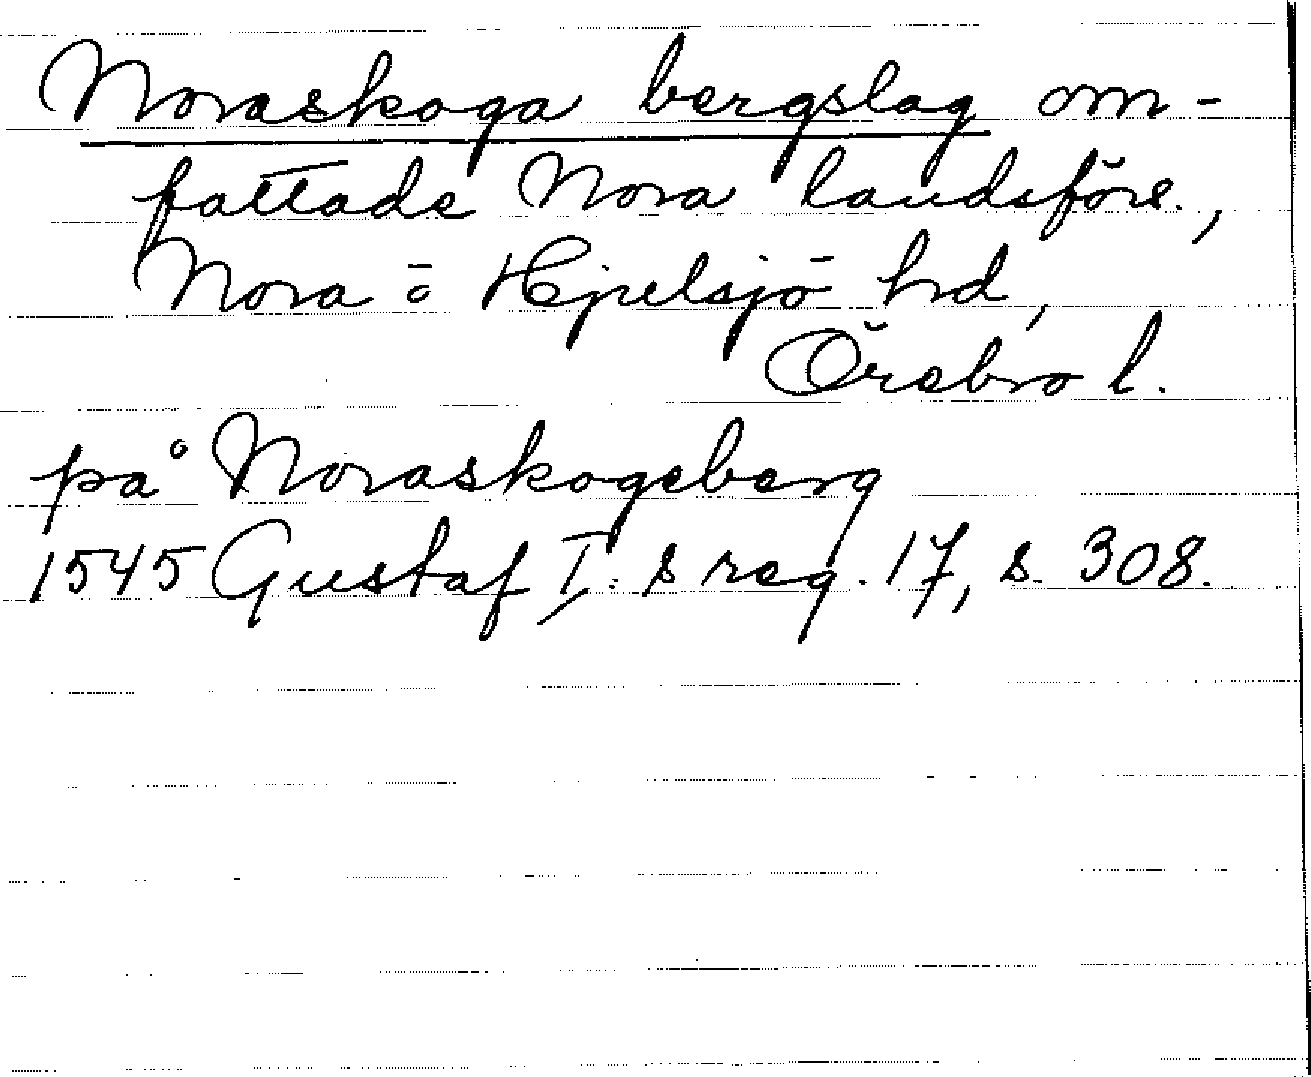 Noraskoga bergslag om-
fattade Nora landsförs.,
Nora o Hjelsjö hrd,
Örebro l.
på Noraskogeberg
1545 Gustaf I:s reg. 17, s. 308.